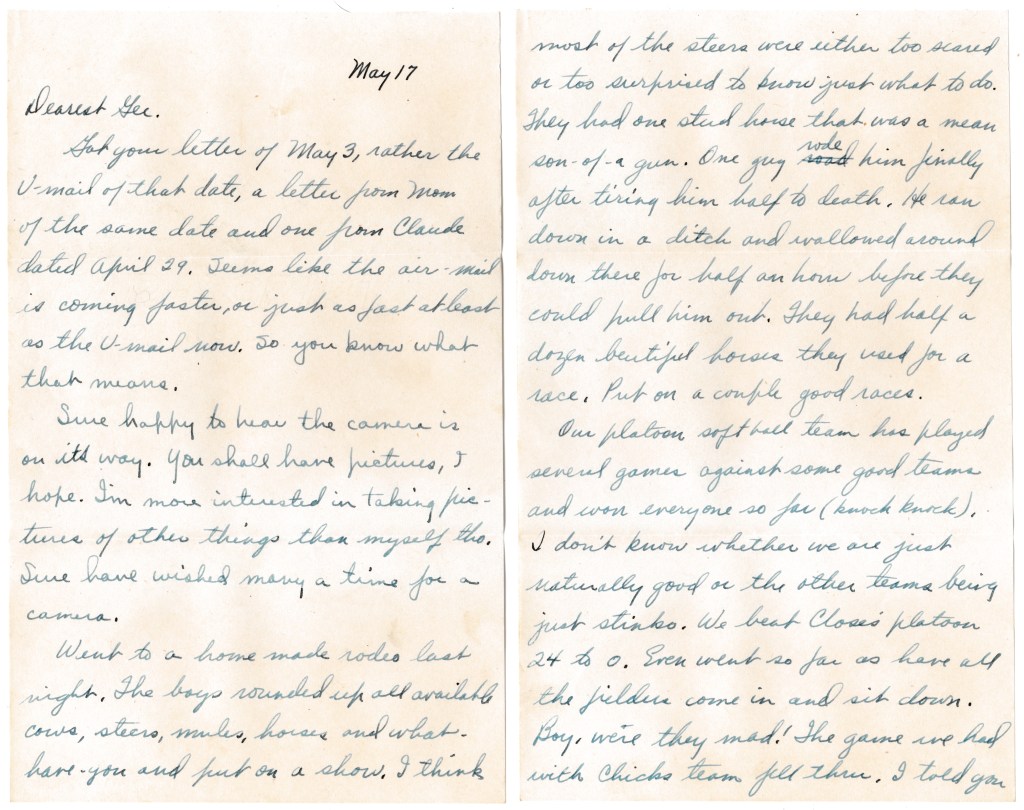 May 17
Dearest Gee.
Got your letter of May 3, rather the
V-mail of that date, a letter from Mom
of the same date and one from Claude
dated April 29. Seems like the air-mail
is coming faster, or just as fast at least
as the V-mail now. So you know what
that means.
Sure happy to hear the camera is
on it's way. You shall have pictures, I
hope. I'm more interested in taking pic-
tures of other things than myself tho.
Sure have wished many a time for a
camera.
Went to a home made rodeo last
night. The boys rounded up all available
cows, steers, mules, horses and what-
have-you and put on a show. I think
most of the steers were either too scared
or too surprised to know just what to do.
They had one stud horse that was a mean
son-of-a gun. One guy rode him finally
after tiring him half to death. He ran
down in a ditch and wallowed around
down there for half an hour before they
could pull him out. They had half a
dozen beutiful horses they used for a
race. Put on a couple good races.
Our platoon softball team has played
several games against some good teams
and won everyone so far (knock knock).
I don't know whether we are just
naturally good or the other teams being
just stinko. We beat Close's platoon
24 to 0. Even went so far as have all
the filders come in and sit down.
Boy, were they mad! The game we had
with Chicks team fell thru. I told you